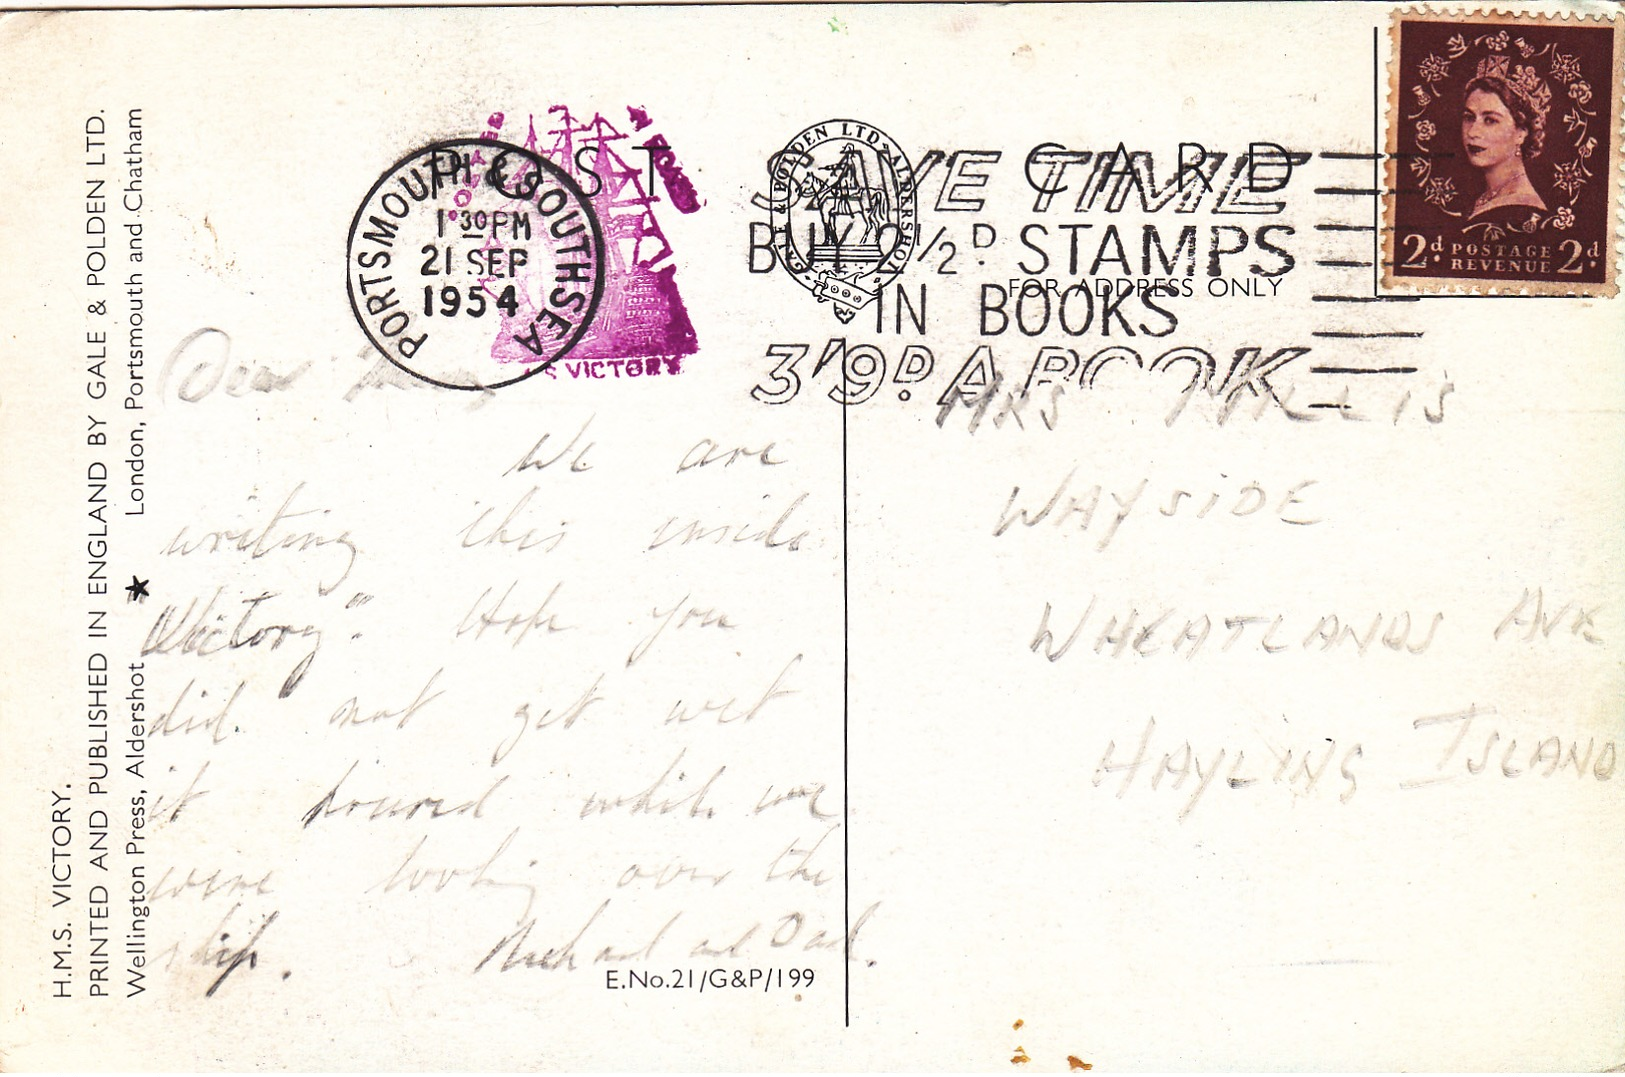 H.M.S. VICTORY.
PRINTED AND PUBLISHED IN ENGLAND BY GALE & POLDEN LTD.
Wellington Press, Aldershot ★ London, Portsmouth and Chatham
POST CARD
PORTSMOUTH & SOUTHSEA
1 30 PM
21 SEP
1954
VICTORY
GALE & POLDEN LTD. ALDERSHOT
SAVE TIME
BUY 2½D STAMPS
IN BOOKS
3'9D. A BOOK
FOR ADDRESS ONLY
2d POSTAGE REVENUE 2d
Dear
We are
writing this inside
"Victory". Hope you
did not get wet
it poured while we
were looking over the
ship. Michael and Dad.
E.No.21/G&P/199
MRS
WAYSIDE
WHEATLANDS AVE
HAYLING ISLAND